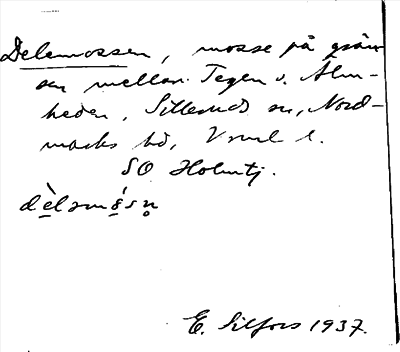 Delemossen, mosse på grän-
sen mellan Tegen o. Älm-
heden, Sillerud sn, Nord-
marks hd, Vrml l.
SO Holmtj.
dèləmósn̥
E. Silfors 1937.